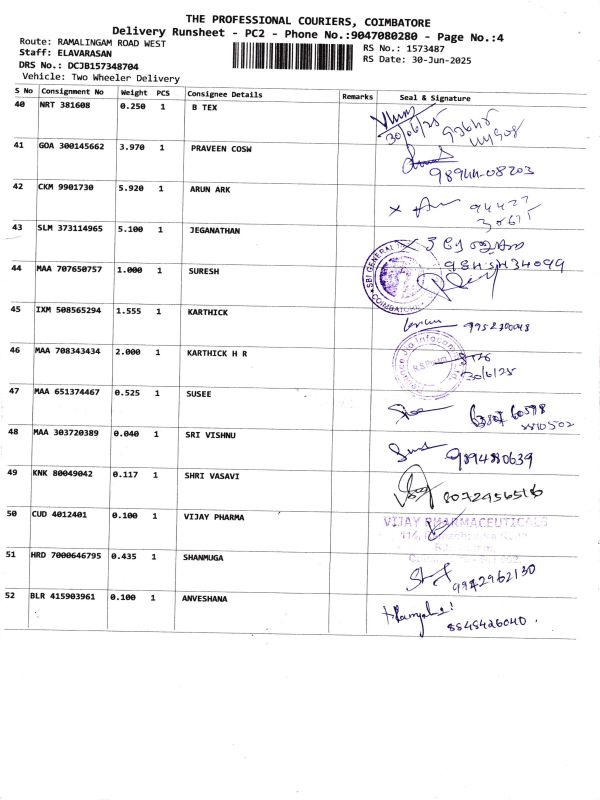 THE PROFESSIONAL COURIERS, COIMBATORE
Delivery Runsheet - PC2 - Phone No.:9047080280 - Page No.:4
Route: RAMALINGAM ROAD WEST
RS No.: 1573487
Staff: ELAVARASAN
RS Date: 30-Jun-2025
DRS No.: DCJB157348704
Vehicle: Two Wheeler Delivery
S No Consignment No Weight PCS Consignee Details Remarks Seal & Signature
40 NRT 381608 0.250 1 B TEX
30/06/25
41 GOA 300145662 3.970 1 PRAVEEN COSW
98944-08203
42 CKM 9901730 5.920 1 ARUN ARK
94427
30675
43 SLM 373114965 5.100 1 JEGANATHAN
44 MAA 707650757 1.000 1 SURESH
SBI GENERAL
COIMBATORE
45 IXM 508565294 1.555 1 KARTHICK
46 MAA 708343434 2.000 1 KARTHICK H R
Jio Infocomm
R.S.Puram
30/6/25
47 MAA 651374467 0.525 1 SUSEE
48 MAA 303720389 0.040 1 SRI VISHNU
9894480639
49 KNK 80049042 0.117 1 SHRI VASAVI
8072956516
50 CUD 4012401 0.100 1 VIJAY PHARMA
VIJAY PHARMACEUTICALS
51 HRD 7000646795 0.435 1 SHANMUGA
9942962130
52 BLR 415903961 0.100 1 ANVESHANA
8545426040.